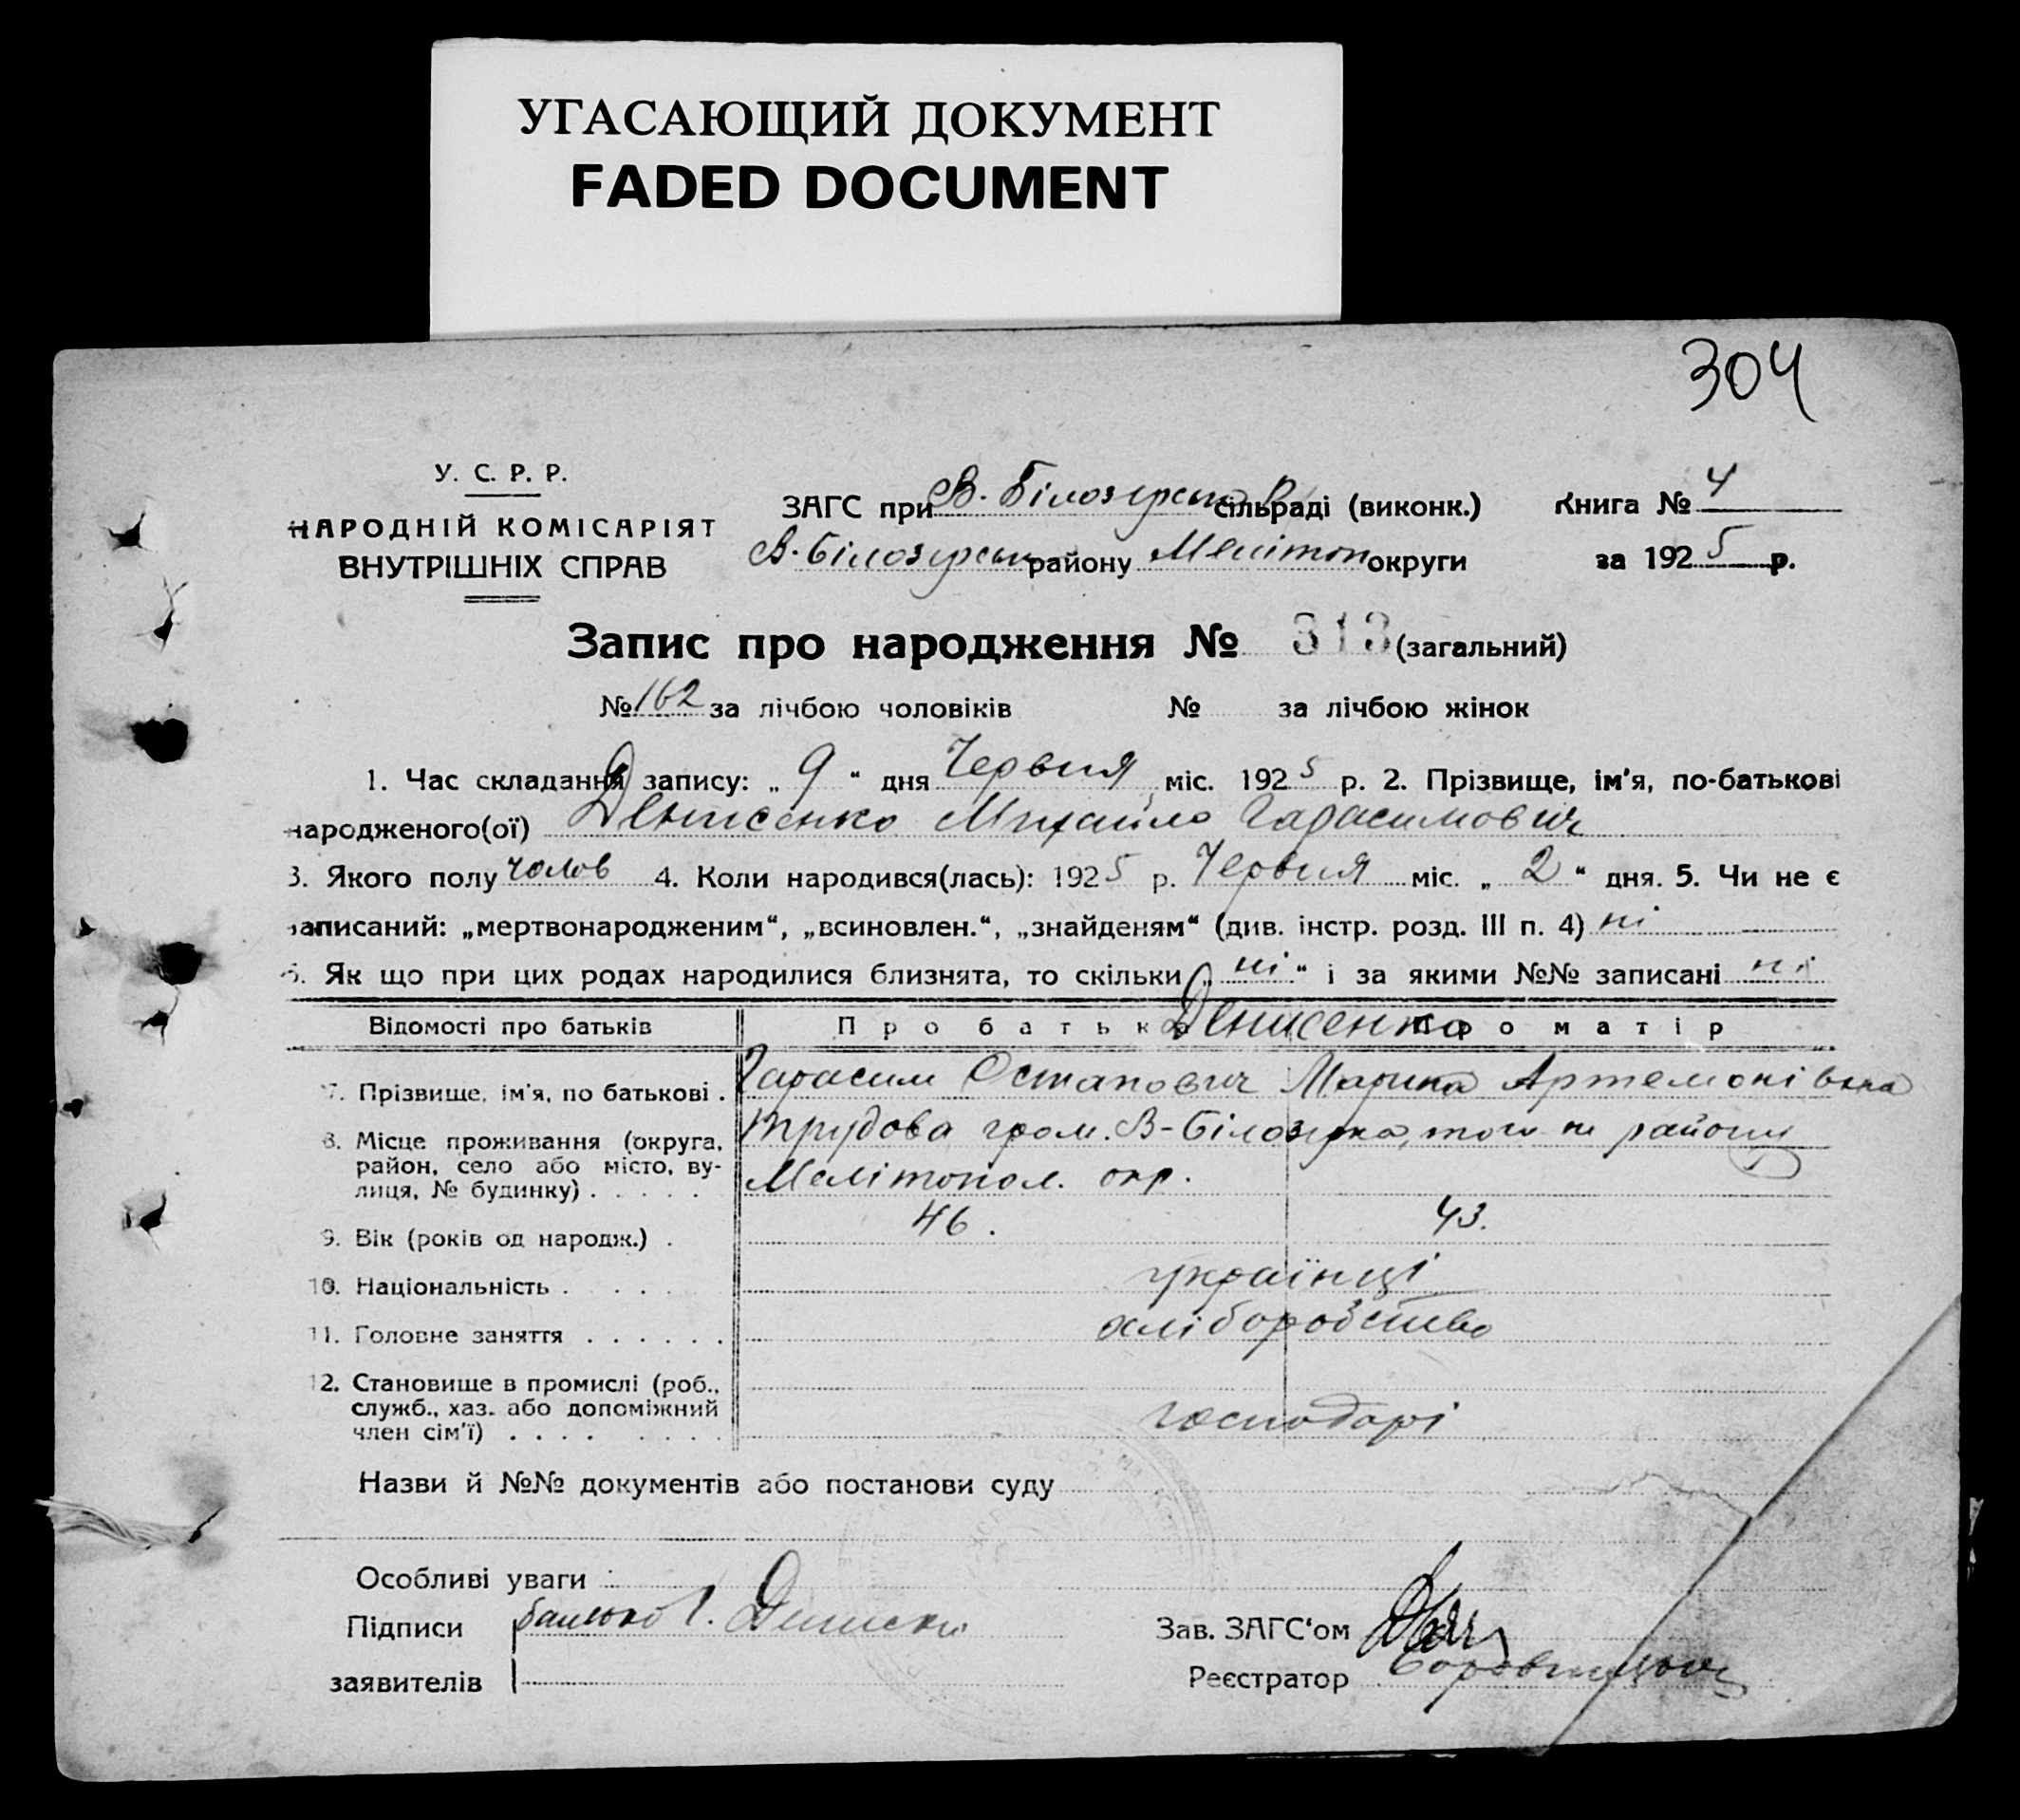 УГАСАЮЩИЙ ДОКУМЕНТ
FADED DOCUMENT
304
У. С. Р. Р.
НАРОДНІЙ КОМІСАРІЯТ
ВНУТРІШНІХ СПРАВ
ЗАГС при В. Білозерськ сільраді (виконк.)
Книга № 4
В. Білозерськ району Мелітоп округи
за 1925 р.
Запис про народження № 313 (загальний)
№ 162 за лічбою чоловіків № за лічбою жінок
1. Час складання запису: „ 9 “ дня Червня міс. 1925 р. 2. Прізвище, ім'я, по-батькові
народженого(ої) Денисенко Михайло Гарасимович
3. Якого полу чолов 4. Коли народився(лась): 1925 р. Червня міс. „ 2 “ дня. 5. Чи не є
записаний: „мертвонародженим“, „всиновлен.“, „знайденям“ (див. інстр. розд. III п. 4) ні
6. Як що при цих родах народилися близнята, то скільки „ ні “ і за якими №№ записані ні
Відомості про батьків Про батька Про матір
Денисенко
7. Прізвище, ім'я, по батькові . Гарасим Остапович Марина Артемонівна
8. Місце проживання (округа, район, село або місто, ву-
лиця, № будинку) . . . . .
Трудова гром. В-Білозерка, того ж району
Мелітопол. окр.
9. Вік (років од народж.) . 46. 43.
10. Національність . . . . українці
11. Головне заняття . . . . . . хліборобство
12. Становище в промислі (роб.,
служб., хаз. або допоміжний
член сім'ї) . . . . . . . . господарі
Назви й №№ документів або постанови суду
Особливі уваги
Підписи батько Г. Дениски
заявителів
Зав. ЗАГС'ом
Реєстратор